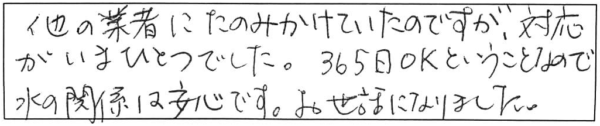 他の業者にたのみかけていたのですが、対応
がいまひとつでした。365日OKということなので
水の関係は安心です。お世話になりました。